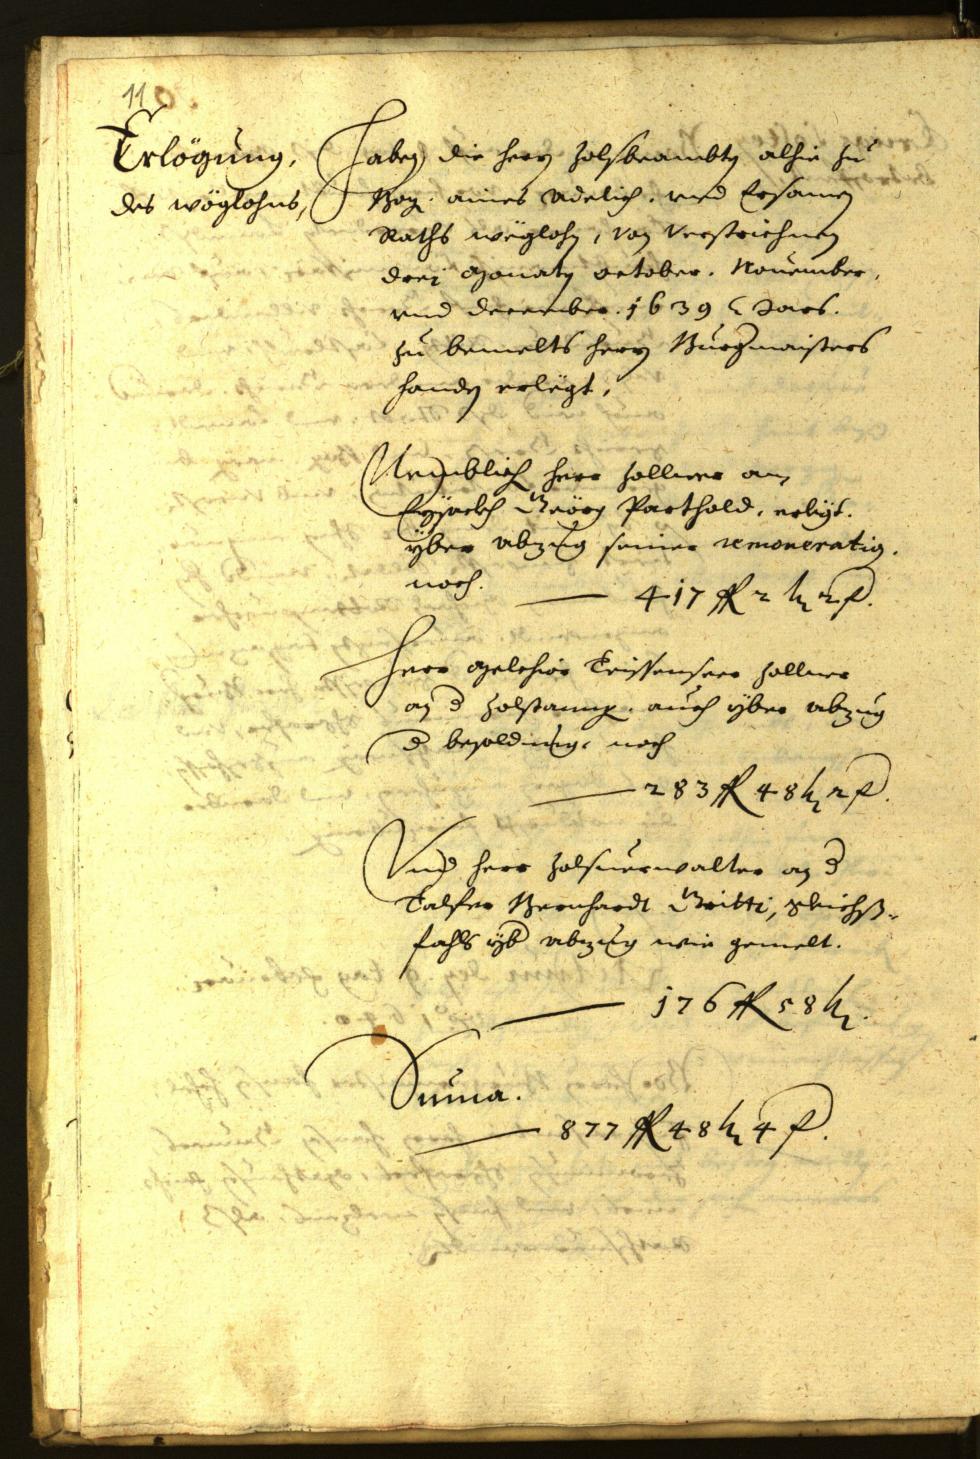 110.
Erlögung,
des wöglohns,
Haben die hern Zolsbeambte alhie zu
Bozen aines Adelich. vnd Ersamen
Raths wöglohn, von verstrichnen
drej Monaten october. Nouember,
vnd december. 1639 Jars.
zu bemelts hern Burgmaisters
handen erlegt,
Nemblich herr Zollner am
Eysackh Geörg Parthold, erlegt.
yber abzug seiner remoneration.
noch. — 417 fl 2 kr 2 f.
Herr Melchior Teissenseer Zollner
an d Zolstang. auch yber abzug
d besoldung. noch
— 283 fl 48 kr 2 f.
Vnd herr Zolsuerwalter an d
Talfer Bernhardt Gritti, gleichß-
fahls yb abzug wie gemelt.
— 176 fl 58 kr.
Suma.
— 877 fl 48 kr 4 f.